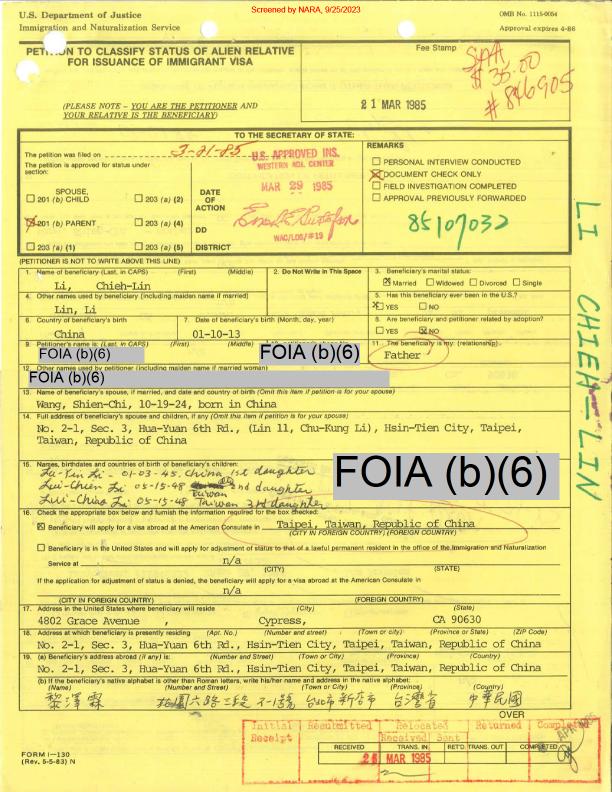 Screened by NARA, 9/25/2023
U.S. Department of Justice
Immigration and Naturalization Service
OMB No. 1115-0054
Approval expires 4-86
PETITION TO CLASSIFY STATUS OF ALIEN RELATIVE
FOR ISSUANCE OF IMMIGRANT VISA
Fee Stamp
SAA
$ 35.00
# 846905
(PLEASE NOTE – YOU ARE THE PETITIONER AND
YOUR RELATIVE IS THE BENEFICIARY)
21 MAR 1985
TO THE SECRETARY OF STATE:
The petition was filed on 3-21-85
The petition is approved for status under
section:
SPOUSE,
201 (b) CHILD
203 (a) (2)
201 (b) PARENT
203 (a) (4)
203 (a) (1)
203 (a) (5)
DATE
OF
ACTION
DD
DISTRICT
U.S. APPROVED INS.
WESTERN ADJ. CENTER
MAR 29 1985
WAC/LOS/#19
REMARKS
PERSONAL INTERVIEW CONDUCTED
DOCUMENT CHECK ONLY
FIELD INVESTIGATION COMPLETED
APPROVAL PREVIOUSLY FORWARDED
85107032
LI CHIEH-LIN
(PETITIONER IS NOT TO WRITE ABOVE THIS LINE)
1. Name of beneficiary (Last, in CAPS) (First) (Middle)
Li, Chieh-Lin
2. Do Not Write in This Space
3. Beneficiary's marital status:
Married Widowed Divorced Single
4. Other names used by beneficiary (including maiden name if married)
Lin, Li
5. Has this beneficiary ever been in the U.S.?
YES NO
6. Country of beneficiary's birth
China
7. Date of beneficiary's birth (Month, day, year)
01-10-13
8. Are beneficiary and petitioner related by adoption?
YES NO
9. Petitioner's name is: (Last, in CAPS) (First) (Middle)
FOIA (b)(6)
FOIA (b)(6)
11. The beneficiary is my: (relationship)
Father
12. Other names used by petitioner (including maiden name if married woman)
FOIA (b)(6)
13. Name of beneficiary's spouse, if married, and date and country of birth (Omit this item if petition is for your spouse)
Wang, Shien-Chi, 10-19-24, born in China
14. Full address of beneficiary's spouse and children, if any (Omit this item if petition is for your spouse)
No. 2-1, Sec. 3, Hua-Yuan 6th Rd., (Lin 11, Chu-Kung Li), Hsin-Tien City, Taipei,
Taiwan, Republic of China
15. Names, birthdates and countries of birth of beneficiary's children:
Li - 01-03-45. China 1st daughter
Lui-Chien Li 05-15-48 Taiwan 2nd daughter
Li 05-15-48 Taiwan 3rd daughter
FOIA (b)(6)
16. Check the appropriate box below and furnish the information required for the box checked:
Beneficiary will apply for a visa abroad at the American Consulate in Taipei, Taiwan, Republic of China
(CITY IN FOREIGN COUNTRY) (FOREIGN COUNTRY)
Beneficiary is in the United States and will apply for adjustment of status to that of a lawful permanent resident in the office of the Immigration and Naturalization
Service at n/a
(CITY) (STATE)
If the application for adjustment of status is denied, the beneficiary will apply for a visa abroad at the American Consulate in
n/a
(CITY IN FOREIGN COUNTRY) (FOREIGN COUNTRY)
17. Address in the United States where beneficiary will reside (City) (State)
4802 Grace Avenue , Cypress, CA 90630
18. Address at which beneficiary is presently residing (Apt. No.) (Number and street) (Town or city) (Province or State) (ZIP Code)
No. 2-1, Sec. 3, Hua-Yuan 6th Rd., Hsin-Tien City, Taipei, Taiwan, Republic of China
19. (a) Beneficiary's address abroad (if any) is: (Number and street) (Town or City) (Province) (Country)
No. 2-1, Sec. 3, Hua-Yuan 6th Rd., Hsin-Tien City, Taipei, Taiwan, Republic of China
(b) If beneficiary's native alphabet is other than Roman letters, write his/her name and address in the native alphabet:
(Name) (Number and Street) (Town or City) (Province) (Country)
黎澤霖 花園六路三段 2-1號 台北市新店市 台灣省 中華民國
OVER
Initial Receipt
Resubmitted
Relocated
Received Sent
Returned
Completed
RECEIVED TRANS. IN RET'D. TRANS. OUT COMPLETED
26 MAR 1985
FORM I–130
(Rev. 5-5-83) N